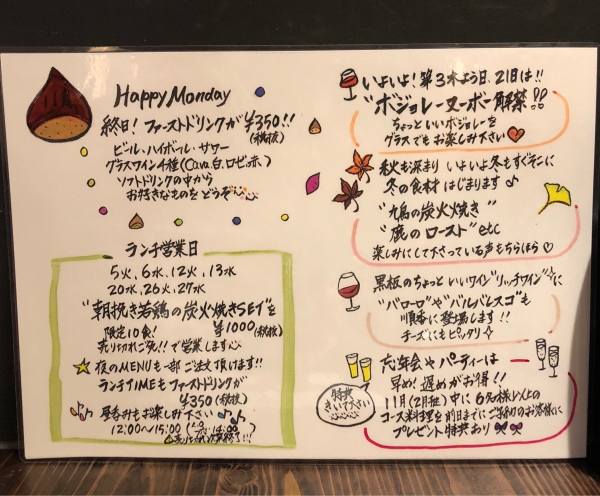 Happy Monday
終日!ファーストドリンクが¥350!!
(税抜)
ビール、ハイボール、サワー
グラスワイン4種(Cava、白、ロゼ、赤)
ソフトドリンクの中から
お好きなものをどうぞ
ランチ営業日
5火、6水、12火、13水
20水、26火、27水
"朝挽き若鶏の炭火焼きSET"を
限定10食! ¥1000(税抜)
売り切れご免!!で営業します
夜のMENUも一部ご注文頂けます!!
ランチTIMEもファーストドリンクが
¥350(税抜)
昼呑みもお楽しみ下さい
12:00~15:00 (L.O. 14:00)
いよいよ!第3木よう日、21日は!!
"ボジョレーヌーボー解禁"!!
ちょっといいボジョレーを
グラスでもお楽しみ下さい
秋も深まり いよいよ冬もすぐそこに
冬の食材 はじまります♪
"鴨の炭火焼き"
"鹿のロースト"etc
楽しみにして下さっている声もちらほら
黒板のちょっといいワイン"リッチワイン"に
"バローロ"や"バルバレスコ"も
順番に登場します!!
チーズにもピッタリ
特典きいて下さい
忘年会やパーティーは
早め!遅めがお得!!
11月(2月程)中に6名様以上の
コース料理を前日までにご予約のお客様に
プレゼント特典あり